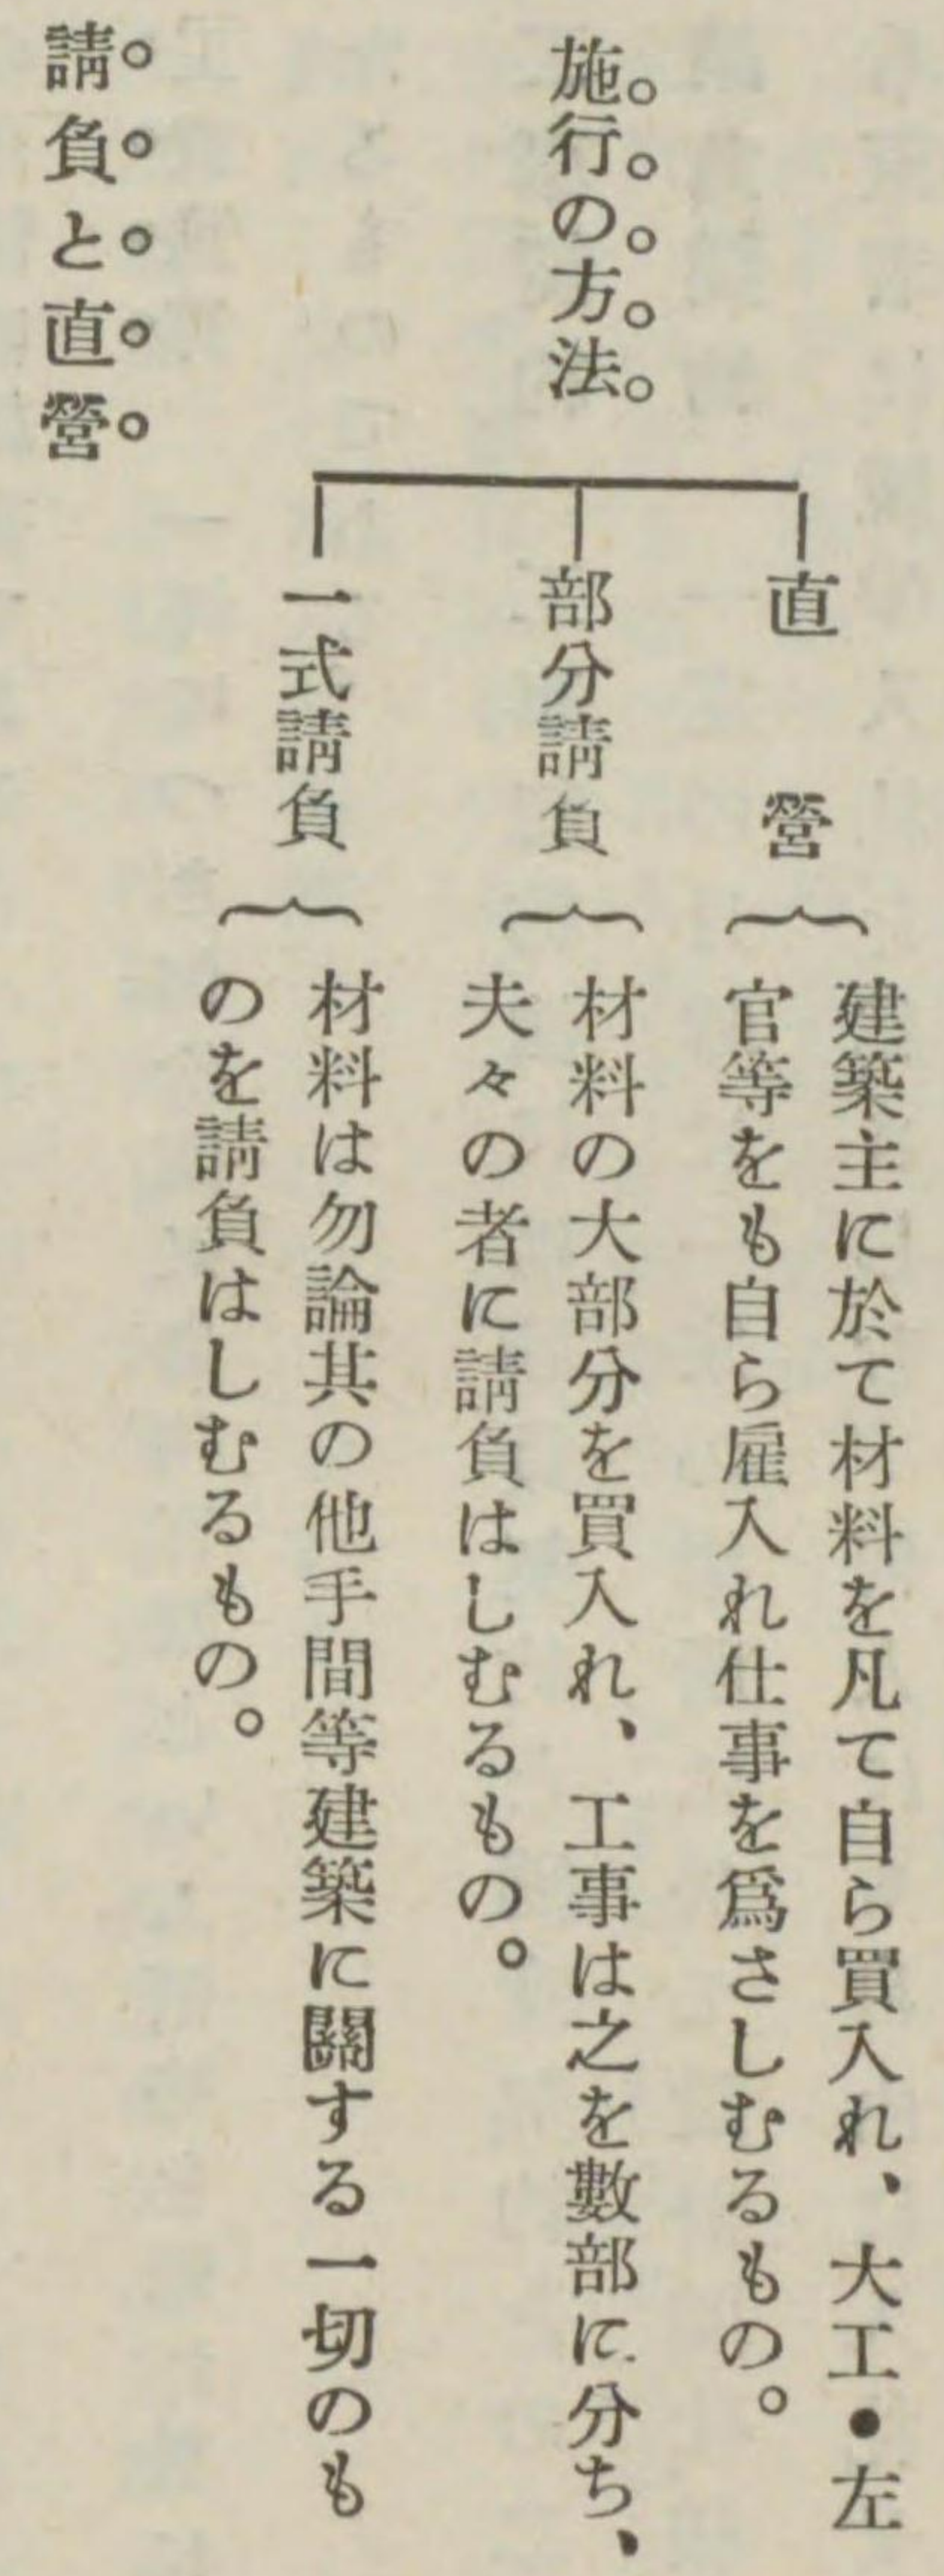 施行の方法
直營
建築主に於て材料を凡て自ら買入れ、大工・左
官等をも自ら雇入れ仕事を爲さしむるもの。
部分請負
材料の大部分を買入れ、工事は之を數部に分ち、
夫々の者に請負はしむるもの。
一式請負
材料は勿論其の他手間等建築に關する一切のも
のを請負はしむるもの。
請負と直營